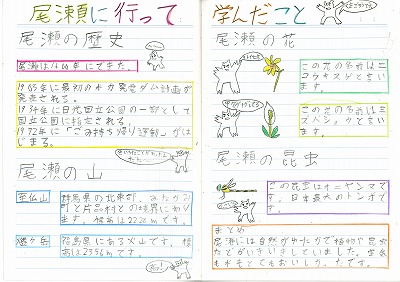 尾瀬に行って
学んだこと
尾瀬の歴史
尾瀬は1666年にできた。
1903年に最初の水力発電ダム計画が
発表される。
1934年に日光国立公園の一部として
国立公園に指定される。
1972年に「ごみ持ち帰り運動」がは
じまる。
尾瀬の山
至仏山
群馬県の北東部、みなかみ
町と片品村との境界にあり
ます。標高は2228mです。
燧ケ岳
福島県にある火山です。標
高は2356mです。
尾瀬の花
この花の名前はニ
コウキスゲと言い
ます。
この花の名前はミ
ズバショウと言い
ます。
尾瀬の昆虫
この昆虫はオニヤンマで
す。日本最大のトンボで
す。
まとめ
尾瀬には自然がゆたかで植物や昆虫
などがいきいきしていました。空気
も水もとてもおいしかったです。